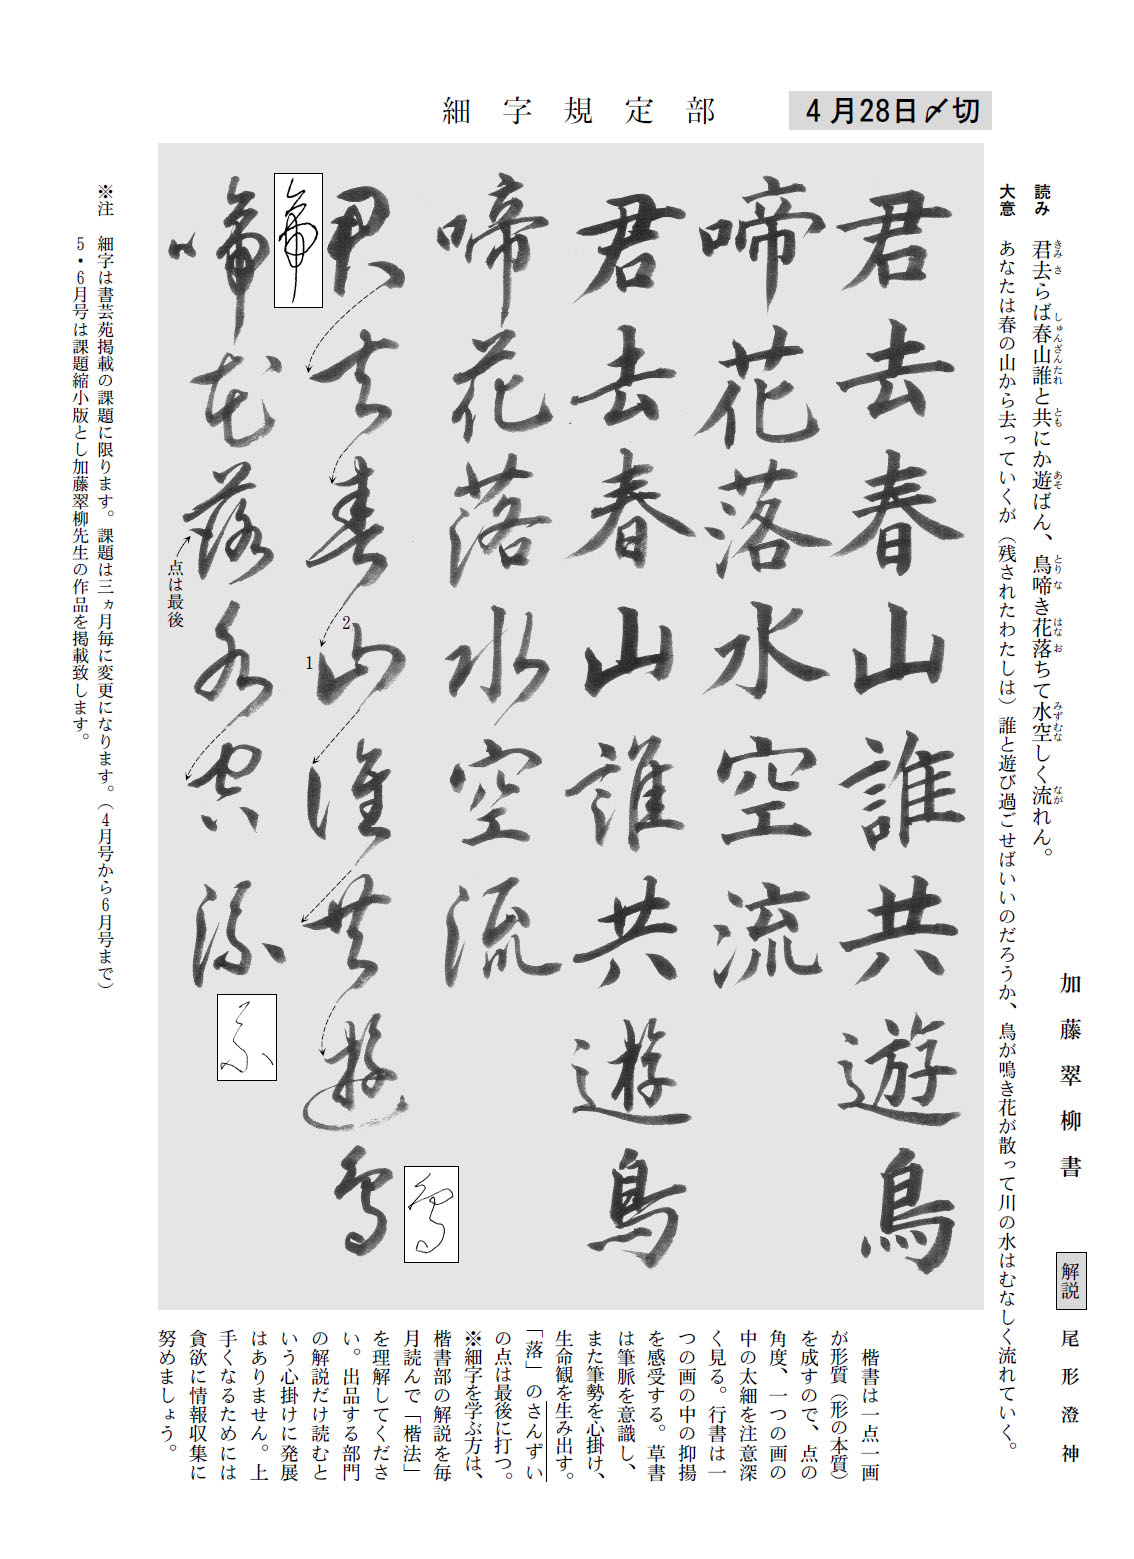 細字規定部
4月28日〆切
読み 君去らば春山誰と共にか遊ばん、鳥啼き花落ちて水空しく流れん。
きみ さ しゅんざんたれ とも あそ とり な はな お みずむな なが
大意 あなたは春の山から去っていくが(残されたわたしは)誰と遊び過ごせばいいのだろうか、鳥が鳴き花が散って川の水はむなしく流れていく。
加藤翠柳書
解説 尾形澄神
君去春山誰共遊鳥
啼花落水空流
君去春山誰共遊鳥
啼花落水空流
君去春山誰共遊鳥
啼花落水空流
2
1
点は最後
楷書は一点一画
が形質(形の本質)
を成すので、点の
角度、一つの画の
中の太細を注意深
く見る。行書は一
つの画の中の抑揚
を感受する。草書
は筆脈を意識し、
また筆勢を心掛け、
生命観を生み出す。
「落」のさんずい
の点は最後に打つ。
※細字を学ぶ方は、
楷書部の解説を毎
月読んで「楷法」
を理解してくださ
い。出品する部門
の解説だけ読むと
いう心掛けに発展
はありません。上
手くなるためには
貪欲に情報収集に
努めましょう。
※注 細字は書芸苑掲載の課題に限ります。課題は三ヵ月毎に変更になります。(4月号から6月号まで)
5・6月号は課題縮小版とし加藤翠柳先生の作品を掲載致します。